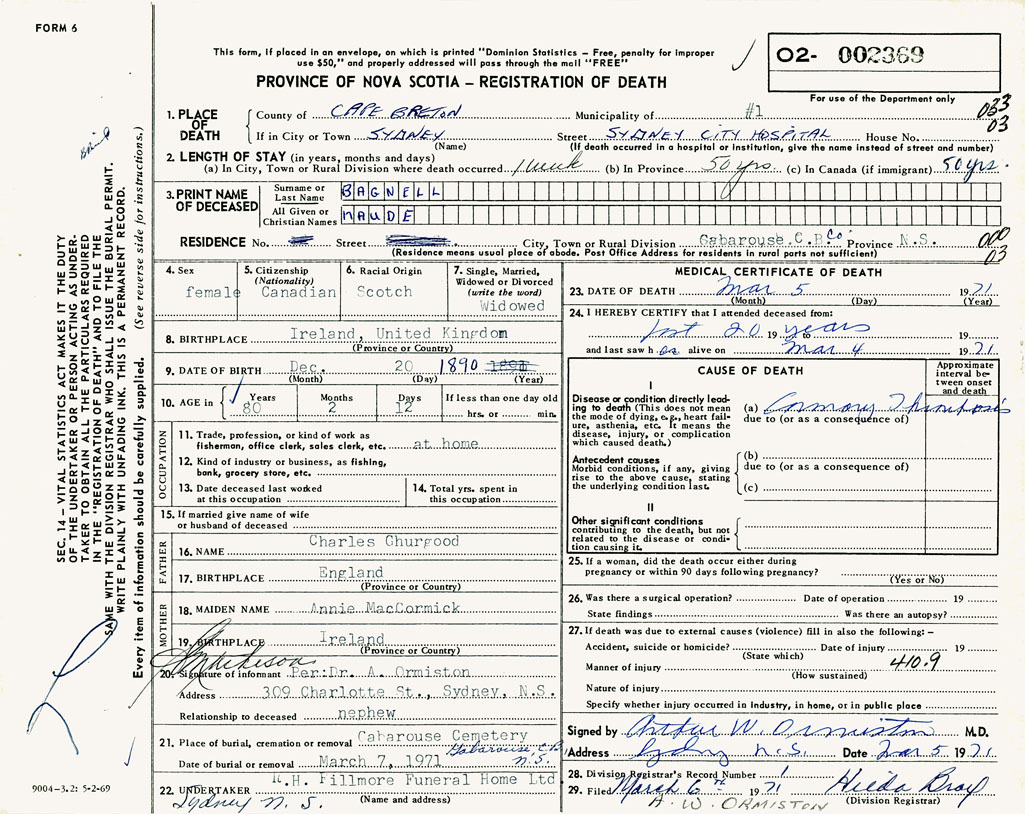 FORM 6
This form, if placed in an envelope, on which is printed "Dominion Statistics – Free, penalty for improper
use $50," and properly addressed will pass through the mail "FREE"
PROVINCE OF NOVA SCOTIA – REGISTRATION OF DEATH
O2- 002369
For use of the Department only
033
03
1. PLACE OF DEATH
County of CAPE BRETON Municipality of #1
If in City or Town SYDNEY Street SYDNEY CITY HOSPITAL House No.
(Name) (If death occurred in a hospital or institution, give the name instead of street and number)
2. LENGTH OF STAY (in years, months and days)
(a) In City, Town or Rural Division where death occurred 1 week (b) In Province 50 yrs. (c) In Canada (if immigrant) 50 yrs.
3. PRINT NAME OF DECEASED
Surname or Last Name BAGNELL
All Given or Christian Names MAUDE
RESIDENCE No. Street City, Town or Rural Division Gabarouse C.B. Co Province N.S.
000
03
(Residence means usual place of abode. Post Office Address for residents in rural parts not sufficient)
4. Sex
female
5. Citizenship
(Nationality)
Canadian
6. Racial Origin
Scotch
7. Single, Married,
Widowed or Divorced
(write the word)
Widowed
8. BIRTHPLACE Ireland, United Kingdom
(Province or Country)
9. DATE OF BIRTH Dec. 20 1890
(Month) (Day) (Year)
10. AGE in
Years Months Days If less than one day old
80 2 12 hrs. or min.
OCCUPATION
11. Trade, profession, or kind of work as
fisherman, office clerk, sales clerk, etc. at home
12. Kind of industry or business, as fishing,
bank, grocery store, etc.
13. Date deceased last worked
at this occupation
14. Total yrs. spent in
this occupation
15. If married give name of wife
or husband of deceased
FATHER
16. NAME Charles Churgood
17. BIRTHPLACE England
(Province or Country)
MOTHER
18. MAIDEN NAME Annie MacCormick
19. BIRTHPLACE Ireland
(Province or Country)
20. Signature of informant Per:Dr. A. Ormiston
Address 309 Charlotte St., Sydney, N.S.
Relationship to deceased nephew
21. Place of burial, cremation or removal Gabarouse Cemetery
Gabarouse, C.B.
N.S.
Date of burial or removal March 7, 1971
22. UNDERTAKER H. Fillmore Funeral Home Ltd
Sydney N. S. (Name and address)
MEDICAL CERTIFICATE OF DEATH
23. DATE OF DEATH Mar 5 1971
(Month) (Day) (Year)
24. I HEREBY CERTIFY that I attended deceased from:
last 20 19 years to 19
and last saw her alive on Mar 4 1971
CAUSE OF DEATH
Approximate
interval be-
tween onset
and death
I
Disease or condition directly lead-
ing to death (This does not mean
the mode of dying, e.g., heart fail-
ure, asthenia, etc. It means the
disease, injury, or complication
which caused death.)
(a) Coronary Thrombosis
due to (or as a consequence of)
Antecedent causes
Morbid conditions, if any, giving
rise to the above cause, stating
the underlying condition last.
(b)
due to (or as a consequence of)
(c)
II
Other significant conditions
contributing to the death, but not
related to the disease or condi-
tion causing it.
25. If a woman, did the death occur either during
pregnancy or within 90 days following pregnancy?
(Yes or No)
26. Was there a surgical operation? Date of operation 19
State findings Was there an autopsy?
27. If death was due to external causes (violence) fill in also the following: –
Accident, suicide or homicide? Date of injury 19
(State which)
Manner of injury 410.9
(How sustained)
Nature of injury
Specify whether injury occurred in industry, in home, or in public place
Signed by Arthur W. Ormiston M.D.
Address Sydney N.S. Date Mar 5 1971
28. Division Registrar's Record Number 1
29. Filed March 6th 1971 Hilda Bray
A. W. ORMISTON (Division Registrar)
SEC. 14 – VITAL STATISTICS ACT MAKES IT THE DUTY
OF THE UNDERTAKER OR PERSON ACTING AS UNDER-
TAKER TO OBTAIN ALL THE PARTICULARS REQUIRED
IN THE "REGISTRATION OF DEATH" AND TO FILE THE
SAME WITH THE DIVISION REGISTRAR WHO SHALL ISSUE THE BURIAL PERMIT.
WRITE PLAINLY WITH UNFADING INK. THIS IS A PERMANENT RECORD.
Every item of information should be carefully supplied. (See reverse side for instructions.)
9004-3.2: 5-2-69